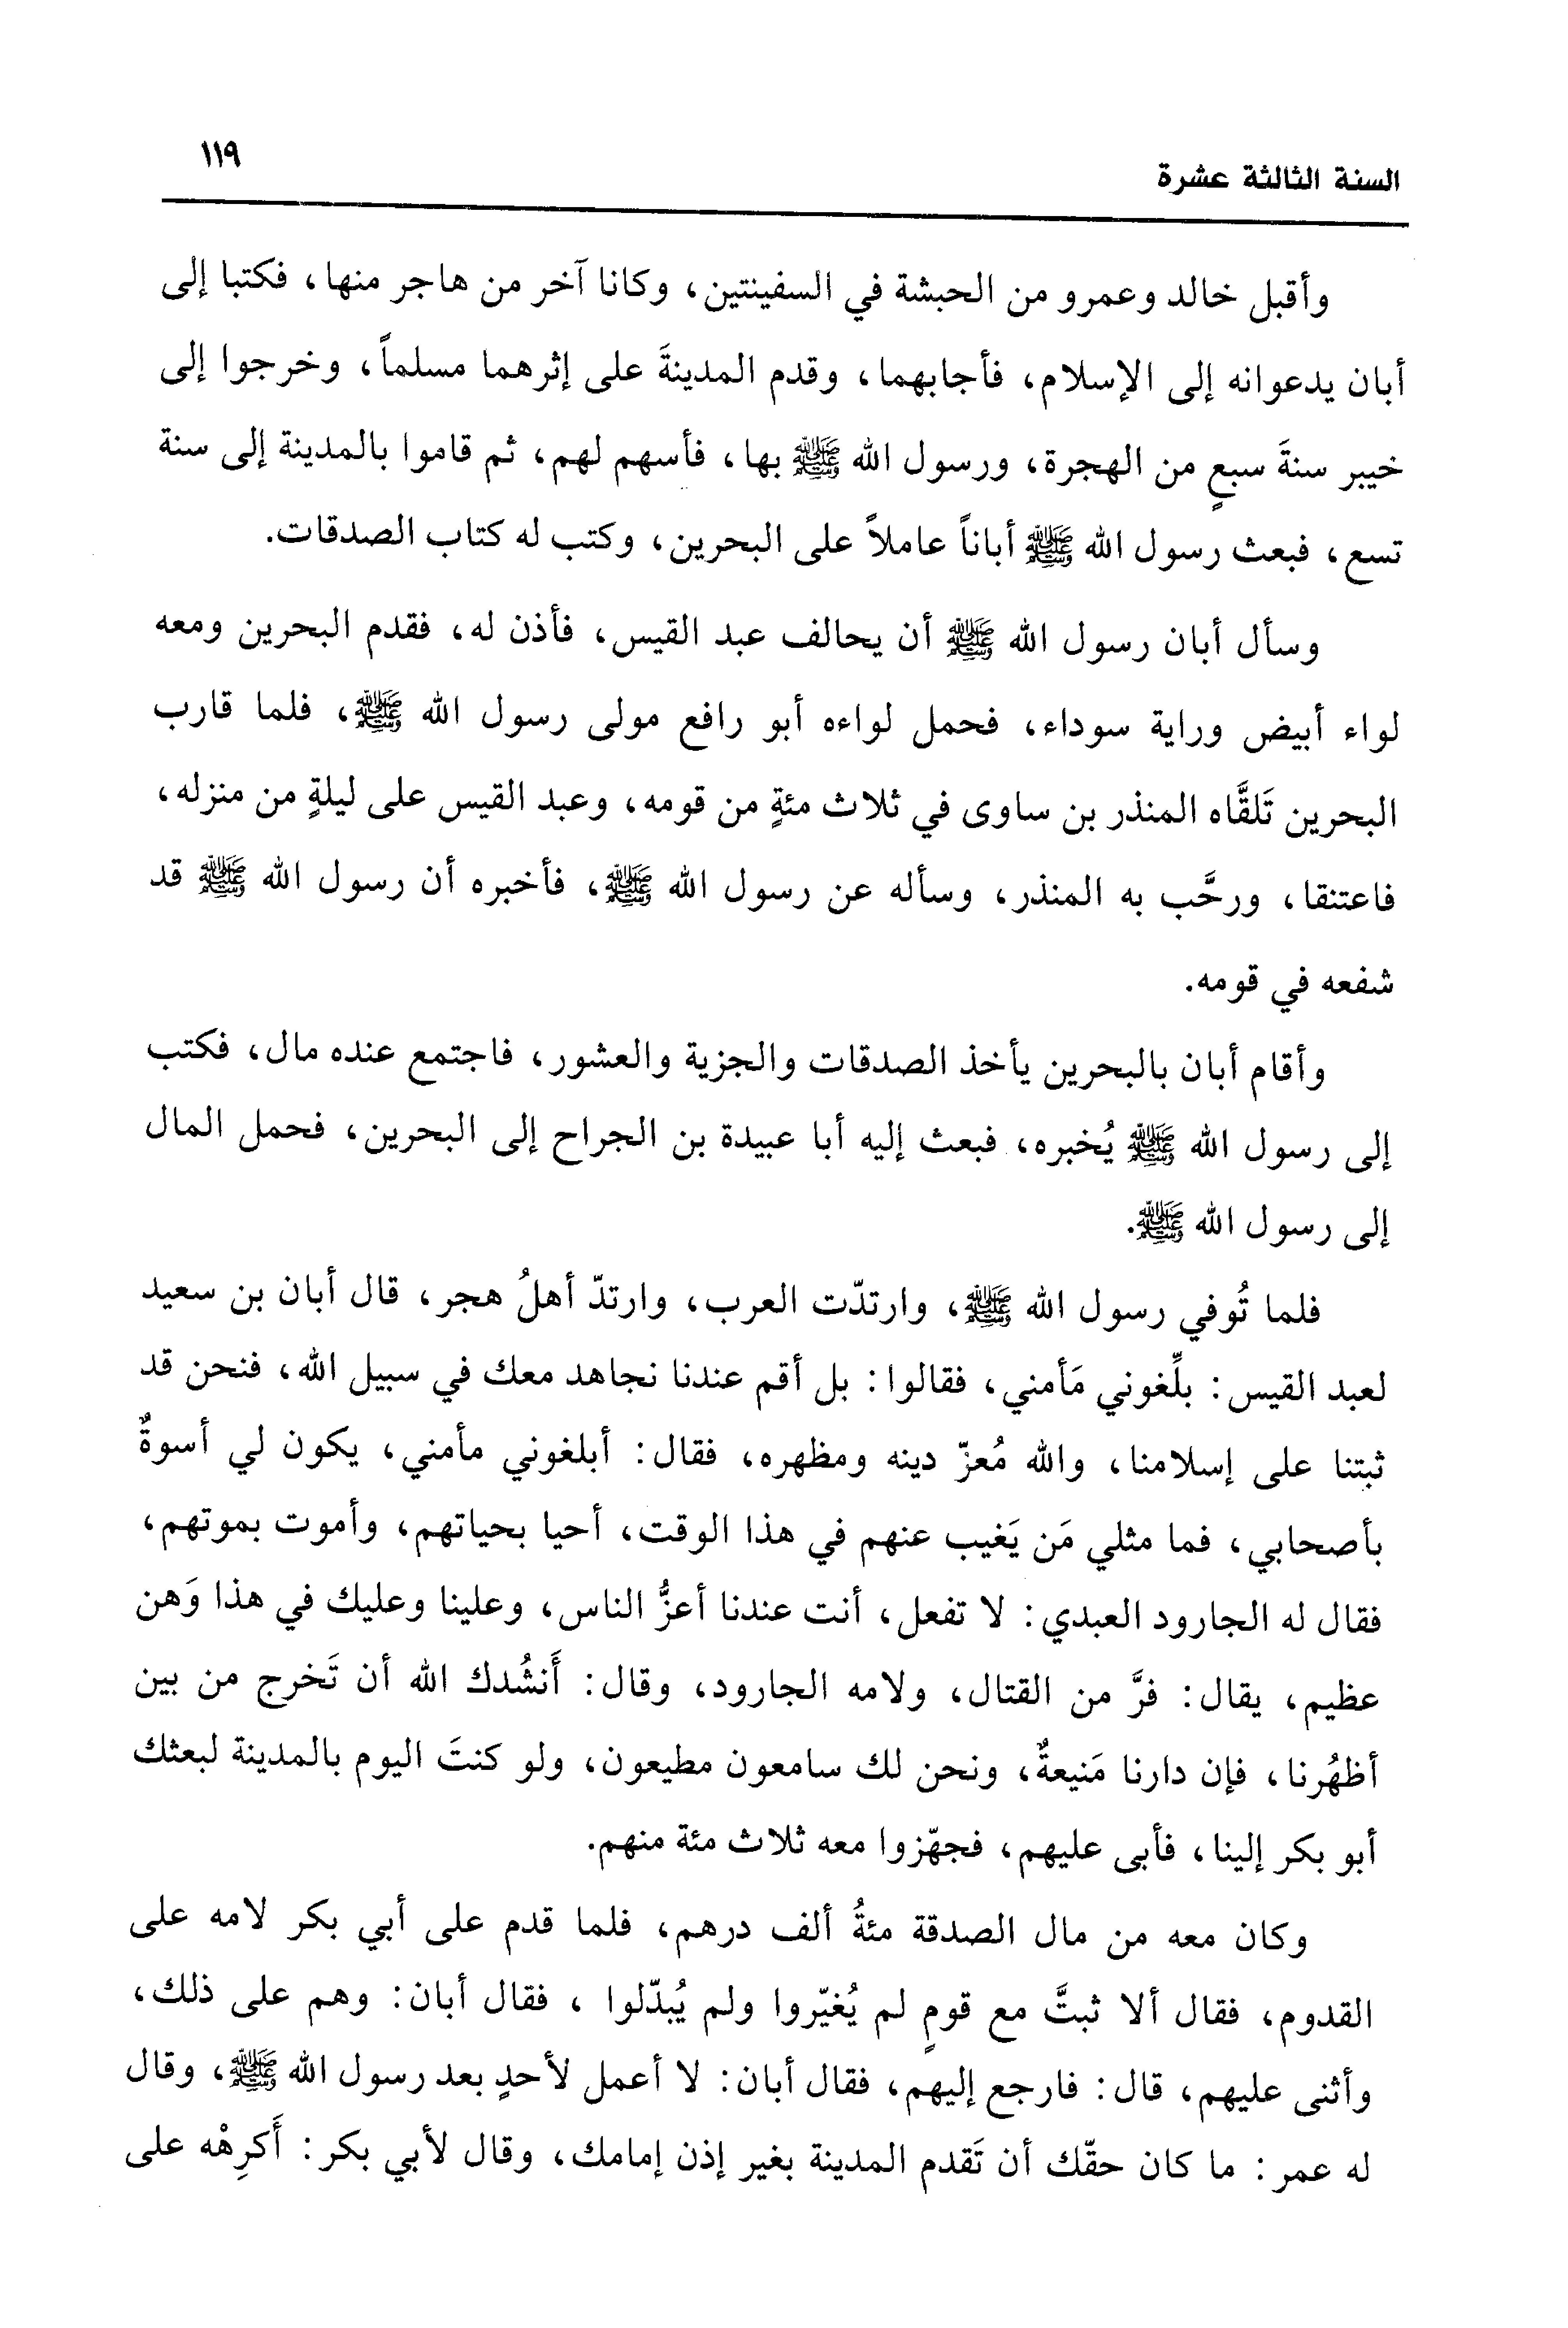 السنة الثالثة عشرة
١١٩
وأقبل خالد وعمرو من الحبشة في السفينتين، وكانا آخر من هاجر منها، فكتبا إلى
أبان يدعوانه إلى الإسلام، فأجابهما، وقدم المدينةَ على إثرهما مسلماً، وخرجوا إلى
خيبر سنةَ سبعٍ من الهجرة، ورسول الله ﷺ بها، فأسهم لهم، ثم قاموا بالمدينة إلى سنة
تسع، فبعث رسول الله ﷺ أباناً عاملاً على البحرين، وكتب له كتاب الصدقات.
وسأل أبان رسول الله ﷺ أن يحالف عبد القيس، فأذن له، فقدم البحرين ومعه
لواء أبيض وراية سوداء، فحمل لواءه أبو رافع مولى رسول الله ﷺ، فلما قارب
البحرين تَلقَّاه المنذر بن ساوى في ثلاث مئةٍ من قومه، وعبد القيس على ليلةٍ من منزله،
فاعتنقا، ورحَّب به المنذر، وسأله عن رسول الله ﷺ، فأخبره أن رسول الله ﷺ قد
شفعه في قومه.
وأقام أبان بالبحرين يأخذ الصدقات والجزية والعشور، فاجتمع عنده مال، فكتب
إلى رسول الله ﷺ يُخبره، فبعث إليه أبا عبيدة بن الجراح إلى البحرين، فحمل المال
إلى رسول الله ﷺ.
فلما تُوفي رسول الله ﷺ، وارتدّت العرب، وارتدّ أهلُ هجر، قال أبان بن سعيد
لعبد القيس: بلِّغوني مَأمني، فقالوا: بل أقم عندنا نجاهد معك في سبيل الله، فنحن قد
ثبتنا على إسلامنا، والله مُعزّ دينه ومظهره، فقال: أبلغوني مأمني، يكون لي أسوةٌ
بأصحابي، فما مثلي مَن يَغيب عنهم في هذا الوقت، أحيا بحياتهم، وأموت بموتهم،
فقال له الجارود العبدي: لا تفعل، أنت عندنا أعزُّ الناس، وعلينا وعليك في هذا وَهن
عظيم، يقال: فرَّ من القتال، ولامه الجارود، وقال: أَنشُدك الله أن تَخرج من بين
أظهُرنا، فإن دارنا مَنيعةٌ، ونحن لك سامعون مطيعون، ولو كنتَ اليوم بالمدينة لبعثك
أبو بكر إلينا، فأبى عليهم، فجهّزوا معه ثلاث مئة منهم.
وكان معه من مال الصدقة مئةُ ألف درهم، فلما قدم على أبي بكر لامه على
القدوم، فقال ألا ثبتَّ مع قومٍ لم يُغيّروا ولم يُبدّلوا ، فقال أبان: وهم على ذلك،
وأثنى عليهم، قال: فارجع إليهم، فقال أبان: لا أعمل لأحدٍ بعد رسول الله ﷺ، وقال
له عمر: ما كان حقّك أن تَقدم المدينة بغير إذن إمامك، وقال لأبي بكر: أَكرِهْه على